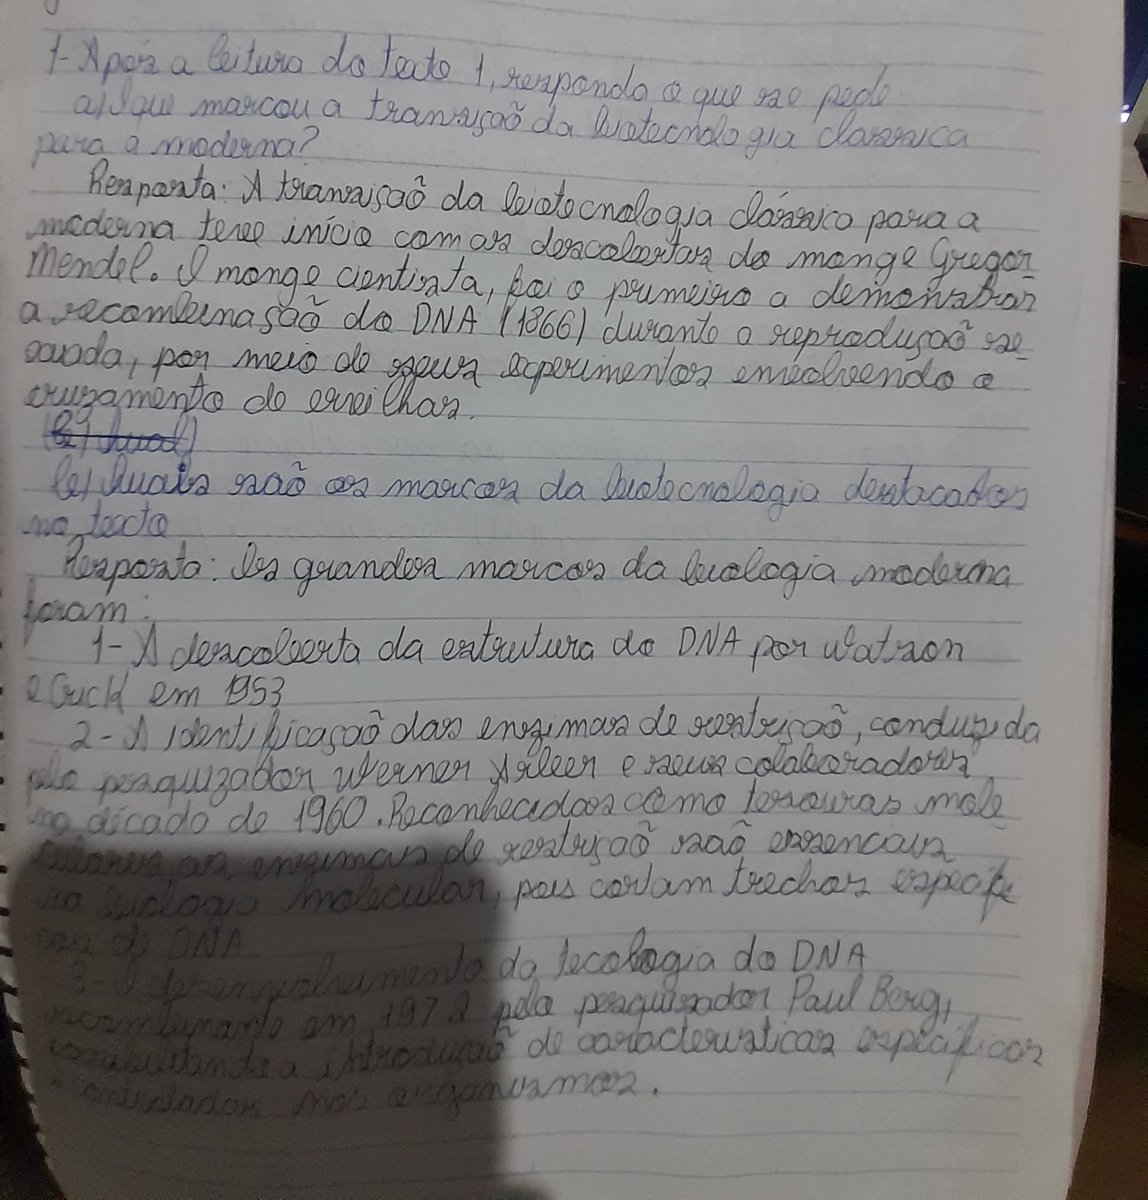 1- Após a leitura do texto 1, responda o que se pede
a) O que marcou a transição da biotecnologia clássica
para a moderna?
Resposta: A transição da biotecnologia clássica para a
moderna teve início com as descobertas do monge Gregor
Mendel. O monge cientista, foi o primeiro a demonstrar
a recombinação do DNA (1866) durante a reprodução se
xuada, por meio de seus experimentos envolvendo o
cruzamento de ervilhas.
b) Quais são os marcos da biotecnologia destacados
no texto
Resposta: Os grandes marcos da biologia moderna
foram:
1- A descoberta da estrutura do DNA por Watson
e Crick em 1953
2- A identificação das enzimas de restrição, conduzida
pelo pesquizador Werner Arber e seus colaboradores
na década de 1960. Reconhecidas como tesouras mole
culares, as enzimas de restrição são essenciais
na biologia molecular, pois cortam trechos específi
cos do DNA
3- O desenvolvimento da tecologia do DNA
recombinante em 1972 pelo pesquizador Paul Berg,
a introdução de características específicas
nos organismos.